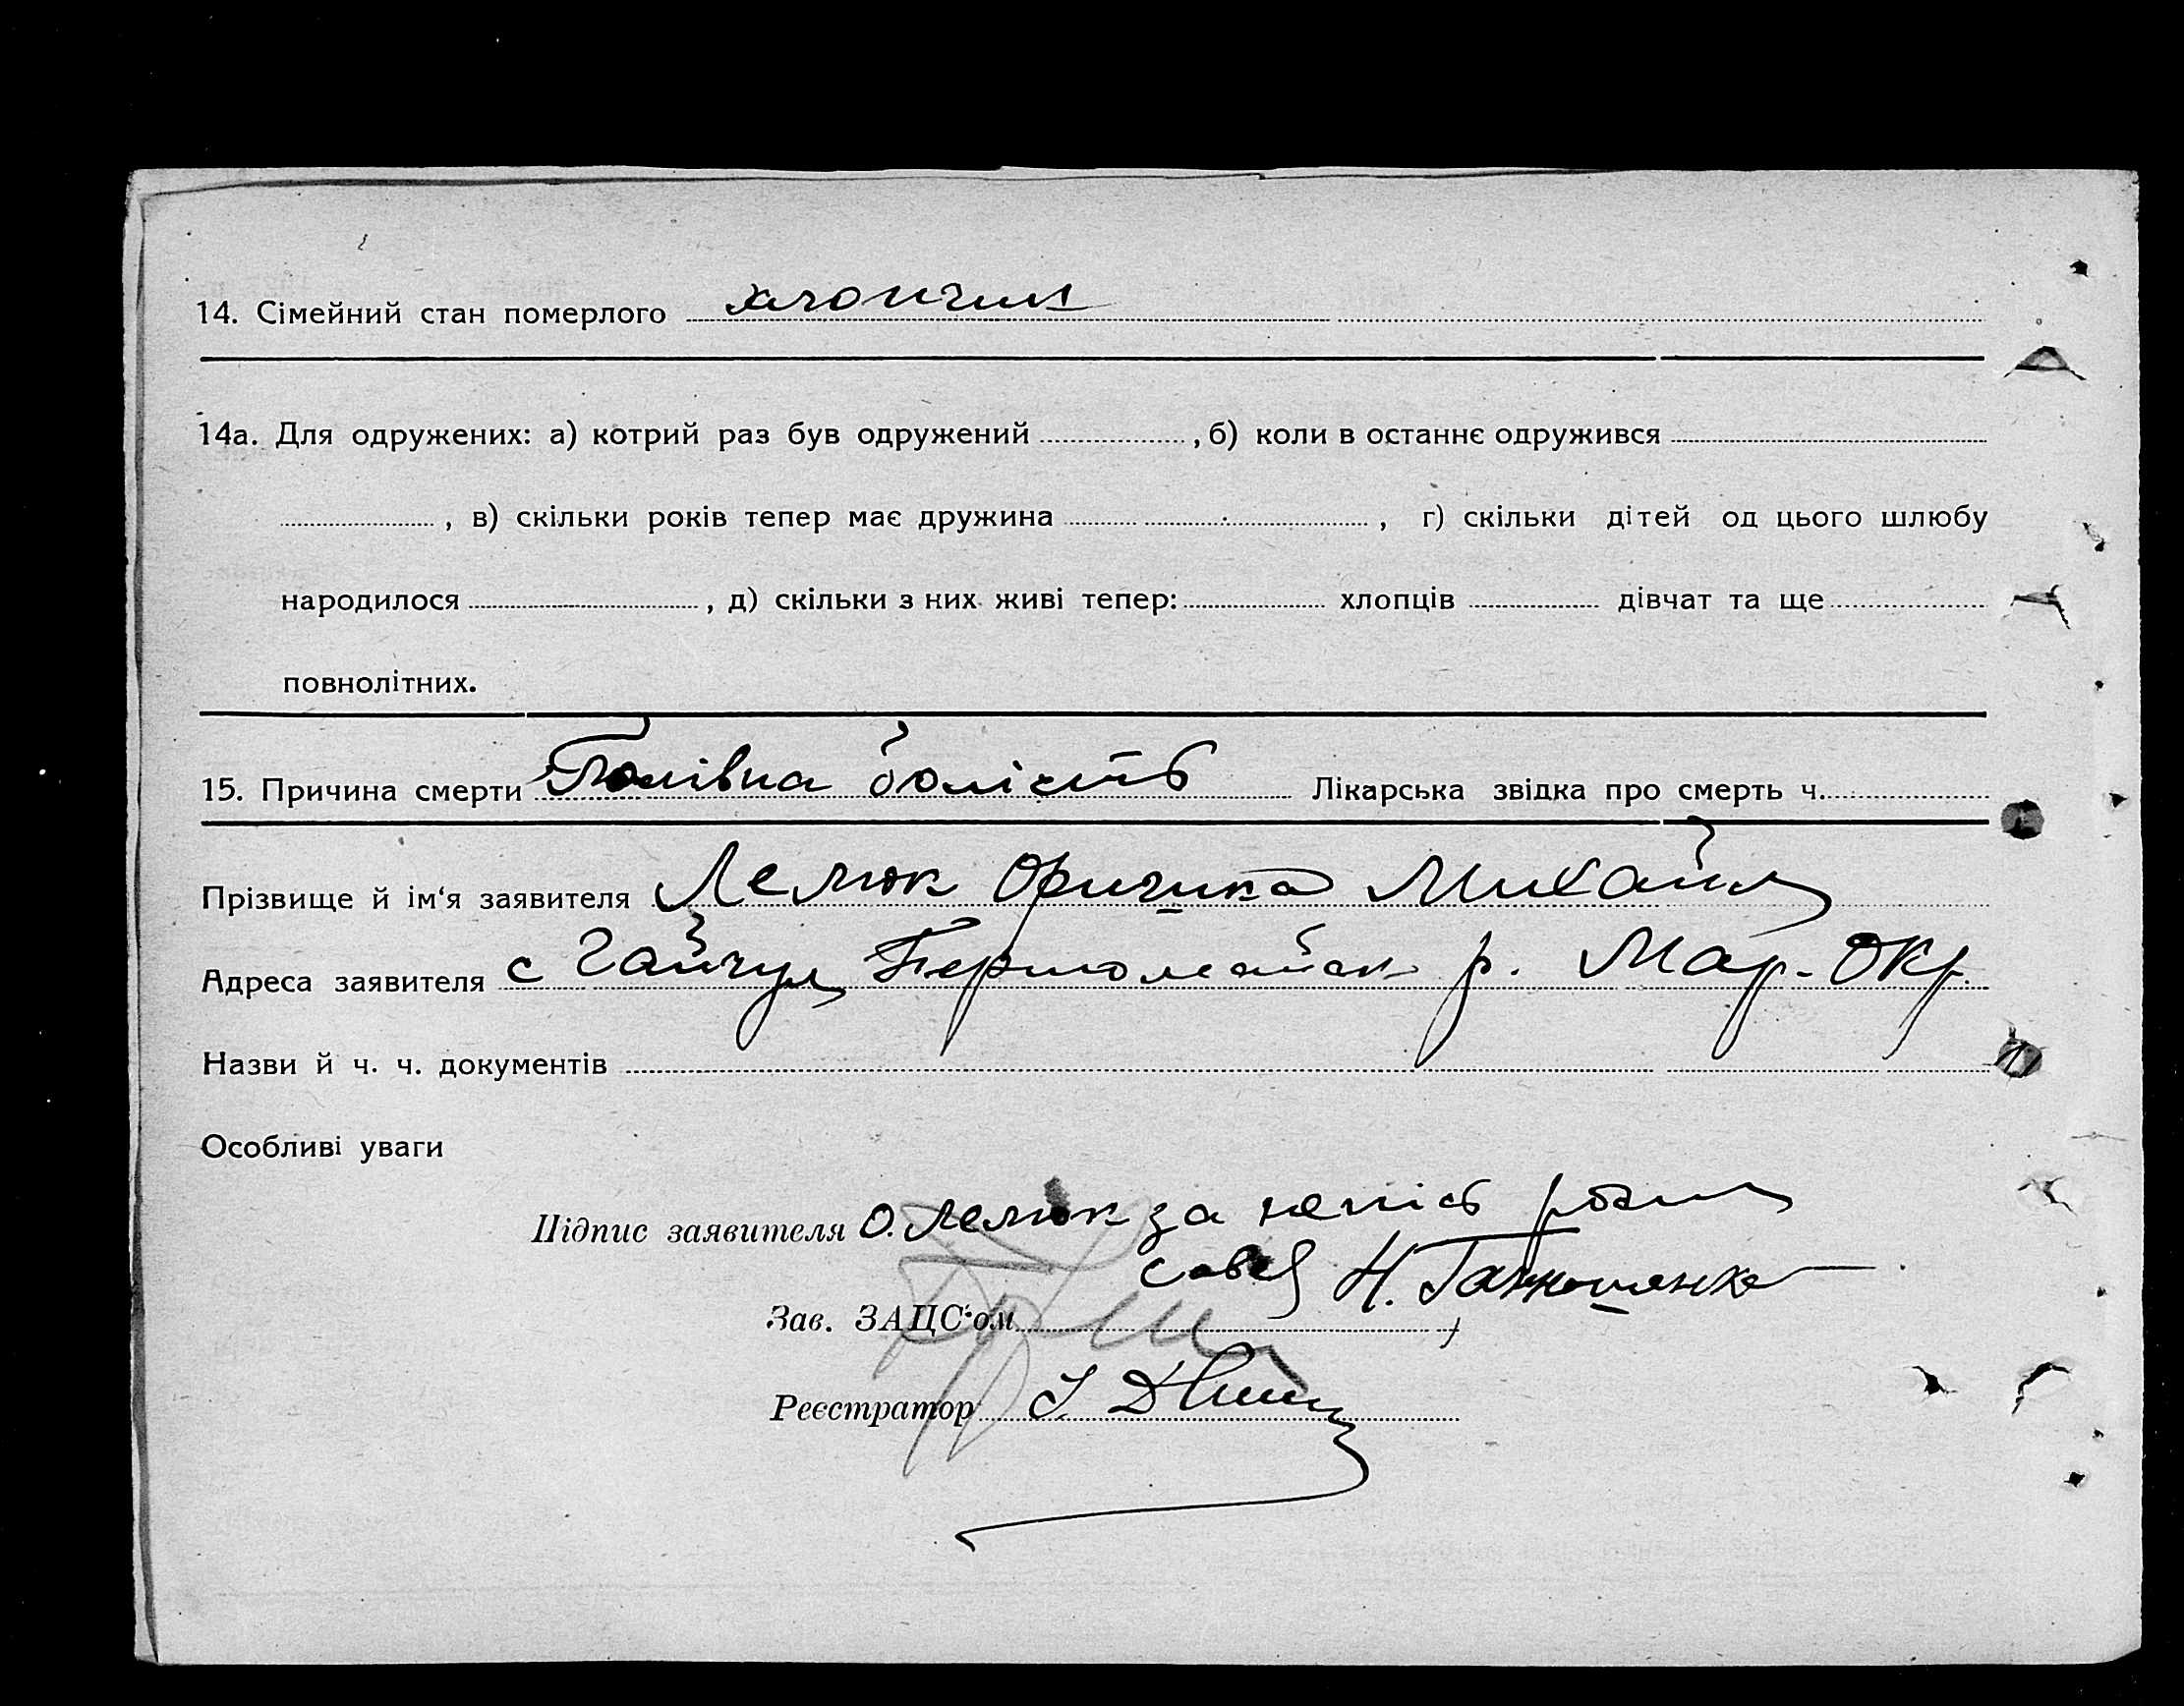 14. Сімейний стан померлого хлопчик
14а. Для одружених: а) котрий раз був одружений , б) коли в останнє одружився
, в) скільки років тепер має дружина , г) скільки дітей од цього шлюбу
народилося , д) скільки з них живі тепер: хлопців дівчат та ще
повнолітних.
15. Причина смерти болість Лікарська звідка про смерть ч.
Прізвище й ім‘я заявителя Лелюк Оришка Михайл
Адреса заявителя с Гайчул Первомайск р. Мар-Окр.
Назви й ч. ч. документів
Особливі уваги
Підпис заявителя О. Лелюк за
Н.
Зав. ЗАЦС‘ом
Реєстратор І.